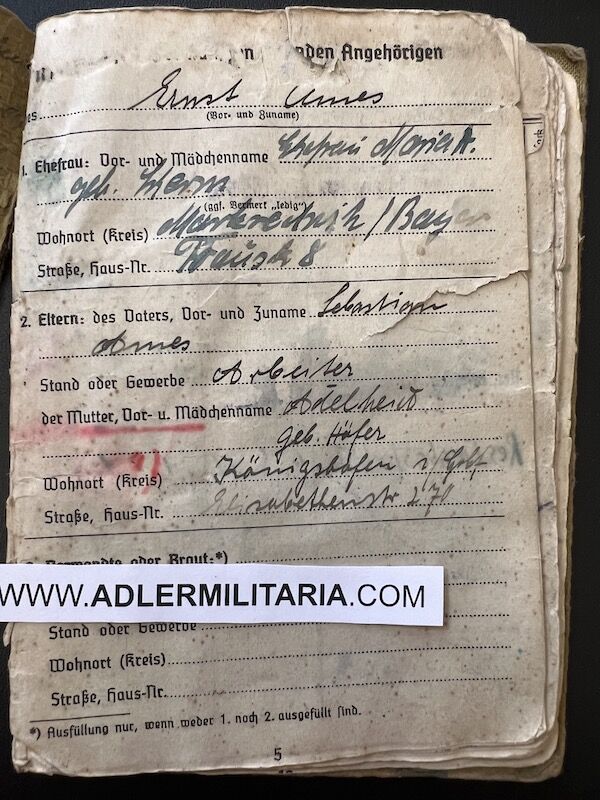 nden Angehörigen
es Ernst Ames
(Vor- und Zuname)
1. Ehefrau: Vor- und Mädchenname Ehefrau Maria A.
geb.
(ggf. Vermerk „ledig")
Wohnort (Kreis) / Bay
Straße, Haus-Nr. 8
2. Eltern: des Vaters, Vor- und Zuname Sebastian
Ames
Stand oder Gewerbe Arbeiter
der Mutter, Vor- u. Mädchenname Adelheid
geb. Höfer
Wohnort (Kreis) Königshofen i/
Straße, Haus-Nr. Elisabethenstr 270
Verwandte oder Braut:*)
WWW.ADLERMILITARIA.COM
Stand oder Gewerbe
Wohnort (Kreis)
Straße, Haus-Nr.
*) Ausfüllung nur, wenn weder 1. noch 2. ausgefüllt sind.
5